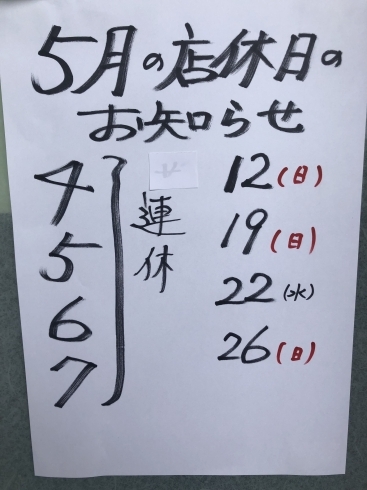 5月の店休日の
お知らせ
4
5
6
7
連休
12(日)
19(日)
22(水)
26(日)